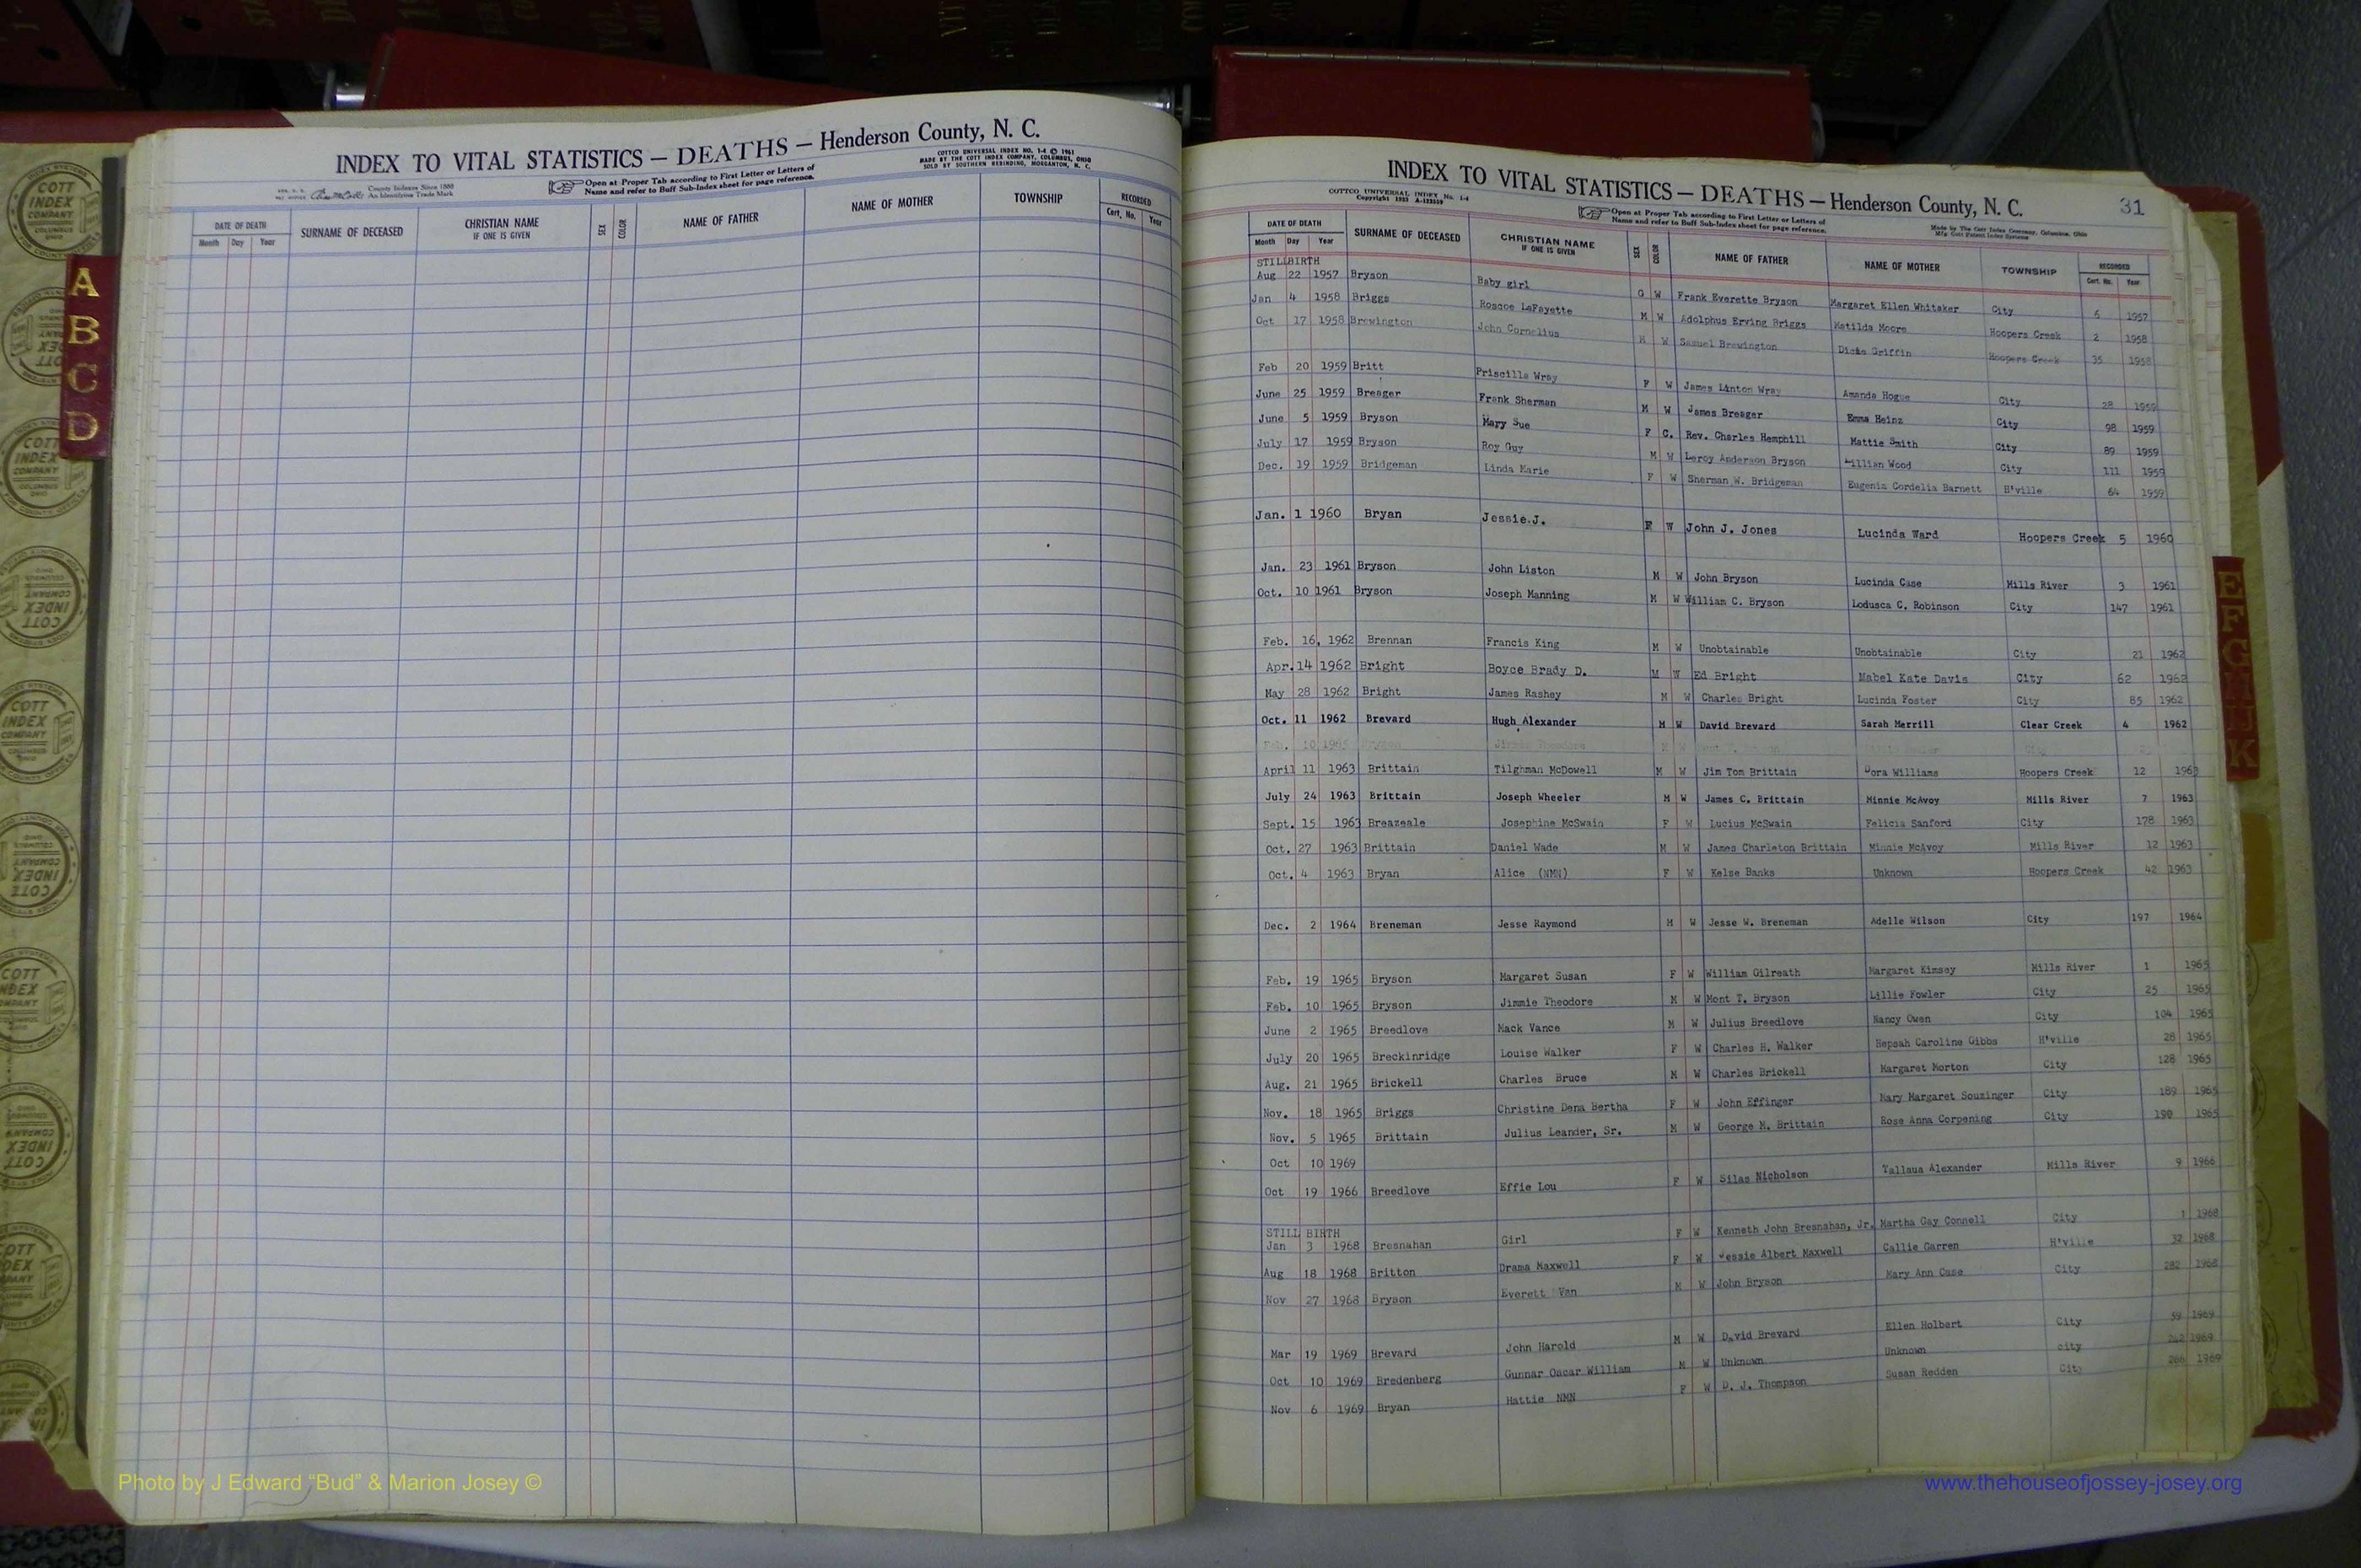 INDEX TO VITAL STATISTICS — DEATHS — Henderson County, N. C.
COTTCO UNIVERSAL INDEX NO. 1-4 © 1961
MADE BY THE COTT INDEX COMPANY, COLUMBUS, OHIO
SOLD BY SOUTHERN REBINDING, MORGANTON, N. C.
County Indexes Since 1888
An Identifying Trade Mark
Open at Proper Tab according to First Letter or Letters of
Name and refer to Buff Sub-Index sheet for page reference.
DATE OF DEATH SURNAME OF DECEASED CHRISTIAN NAME IF ONE IS GIVEN SEX COLOR NAME OF FATHER NAME OF MOTHER TOWNSHIP RECORDED
Month Day Year Cert. No. Year
A
B
C
D
COTT
INDEX
COMPANY
COLUMBUS
OHIO
INDEX TO VITAL STATISTICS — DEATHS — Henderson County, N. C. 31
COTTCO UNIVERSAL INDEX No. 1-4
Open at Proper Tab according to First Letter or Letters of
Name and refer to Buff Sub-Index sheet for page reference.
Made by The Cott Index Company, Columbus, Ohio
DATE OF DEATH SURNAME OF DECEASED CHRISTIAN NAME IF ONE IS GIVEN SEX COLOR NAME OF FATHER NAME OF MOTHER TOWNSHIP RECORDED
Month Day Year Cert. No. Year
STILLBIRTH
Aug 22 1957 Bryson Baby girl G W Frank Everette Bryson Margaret Ellen Whitaker City 6 1957
Jan 4 1958 Briggs Roscoe LaFayette M W Adolphus Erving Briggs Matilda Moore Hoopers Creek 2 1958
Oct 17 1958 Brewington John Cornelius M W Samuel Brewington Griffin Hoopers Creek 35 1958
Feb 20 1959 Britt Priscilla Wray F W James Linton Wray Amanda Hogue City 28 1959
June 25 1959 Breager Frank Sherman M W James Breager Emma Heinz City 98 1959
June 5 1959 Bryson Mary Sue F C. Rev. Charles Hemphill Mattie Smith City 89 1959
July 17 1959 Bryson Roy Guy M W Leroy Anderson Bryson Lillian Wood City 111 1959
Dec. 19 1959 Bridgeman Linda Marie F W Sherman W. Bridgeman Eugenia Cordelia Barnett H'ville 64 1959
Jan. 1 1960 Bryan Jessie J. F W John J. Jones Lucinda Ward Hoopers Creek 5 1960
Jan. 23 1961 Bryson John Liston M W John Bryson Lucinda Case Mills River 3 1961
Oct. 10 1961 Bryson Joseph Manning M W William C. Bryson Lodusca C. Robinson City 147 1961
Feb. 16, 1962 Brennan Francis King M W Unobtainable Unobtainable City 21 1962
Apr. 14 1962 Bright Boyce Brady D. M W Ed Bright Mabel Kate Davis City 62 1962
May 28 1962 Bright James Rashey M W Charles Bright Lucinda Foster City 85 1962
Oct. 11 1962 Brevard Hugh Alexander M W David Brevard Sarah Merrill Clear Creek 4 1962
Feb. 10 1965 Bryson Jimmie Theodore M W
April 11 1963 Brittain Tilghman McDowell M W Jim Tom Brittain Dora Williams Hoopers Creek 12 1963
July 24 1963 Brittain Joseph Wheeler M W James C. Brittain Minnie McAvoy Mills River 7 1963
Sept. 15 1963 Breazeale Josephine McSwain F W Lucius McSwain Felicia Sanford City 178 1963
Oct. 27 1963 Brittain Daniel Wade M W James Charleton Brittain Minnie McAvoy Mills River 12 1963
Oct. 4 1963 Bryan Alice (NMN) F W Kelse Banks Unknown Hoopers Creek 42 1963
Dec. 2 1964 Breneman Jesse Raymond M W Jesse W. Breneman Adelle Wilson City 197 1964
Feb. 19 1965 Bryson Margaret Susan F W William Gilreath Margaret Kimsey Mills River 1 1965
Feb. 10 1965 Bryson Jimmie Theodore M W Mont T. Bryson Lillie Fowler City 25 1965
June 2 1965 Breedlove Mack Vance M W Julius Breedlove Nancy Owen City 104 1965
July 20 1965 Breckinridge Louise Walker F W Charles H. Walker Hepsah Caroline Gibbs H'ville 28 1965
Aug. 21 1965 Brickell Charles Bruce M W Charles Brickell Margaret Morton City 128 1965
Nov. 18 1965 Briggs Christine Dena Bertha F W John Effinger Mary Margaret Souzinger City 189 1965
Nov. 5 1965 Brittain Julius Leander, Sr. M W George M. Brittain Rose Anna Corpening City 190 1965
Oct 10 1969
Oct 19 1966 Breedlove Effie Lou F W Silas Nicholson Tallaua Alexander Mills River 9 1966
STILL BIRTH
Jan 3 1968 Bresnahan Girl F W Kenneth John Bresnahan, Jr. Martha Gay Connell City 1 1968
Aug 18 1968 Britton Drama Maxwell F W Jessie Albert Maxwell Callie Garren H'ville 32 1968
Nov 27 1968 Bryson Everett Van M W John Bryson Mary Ann Case City 282 1968
Mar 19 1969 Brevard John Harold M W David Brevard Ellen Holbert City 59 1969
Oct 10 1969 Bredenberg Gunnar Oscar William M W Unknown Unknown city 242 1969
Nov 6 1969 Bryan Hattie NMN F W D. J. Thompson Susan Redden City 266 1969
E
F
G
H
K
Photo by J Edward “Bud” & Marion Josey ©
www.thehouseofjossey-josey.org